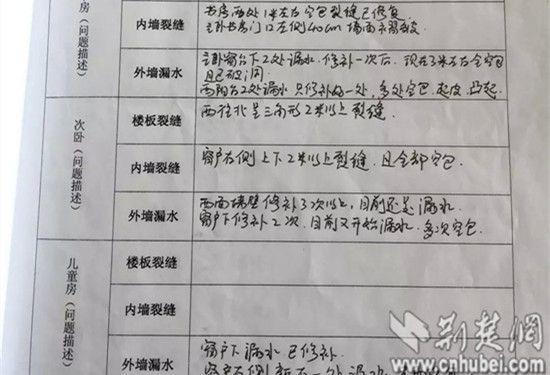 房（问题描述）
内墙裂缝
书房西处1米左右空包裂缝已修复
主卧书房门口左侧40cm墙面
外墙漏水
主卧窗台下2处漏水.修补一次后.现在3米左右空包
且已
西阳台2处漏水只修补好一处,多处空包.起皮.凸起.
次卧（问题描述）
楼板裂缝
西往北呈三角形2米以上裂缝
内墙裂缝
窗户右侧上下2米以上裂缝.且全部空包
外墙漏水
西面墙壁修补了3次以上,目前还是漏水.
窗户下修补2次.目前又开始漏水.多次空包.
儿童房（问题描述）
楼板裂缝
内墙裂缝
外墙漏水
窗户下漏水已修补.
窗户右侧新右一处漏水
荆楚网
www.cnhubei.com